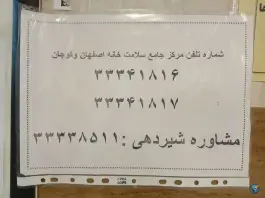 شماره تلفن مرکز جامع سلامت خانه اصفهان وکوجان
۳۳۳۴۱۸۱۶
۳۳۳۴۱۸۱۷
مشاوره شیردهی :۳۳۳۳۸۵۱۱